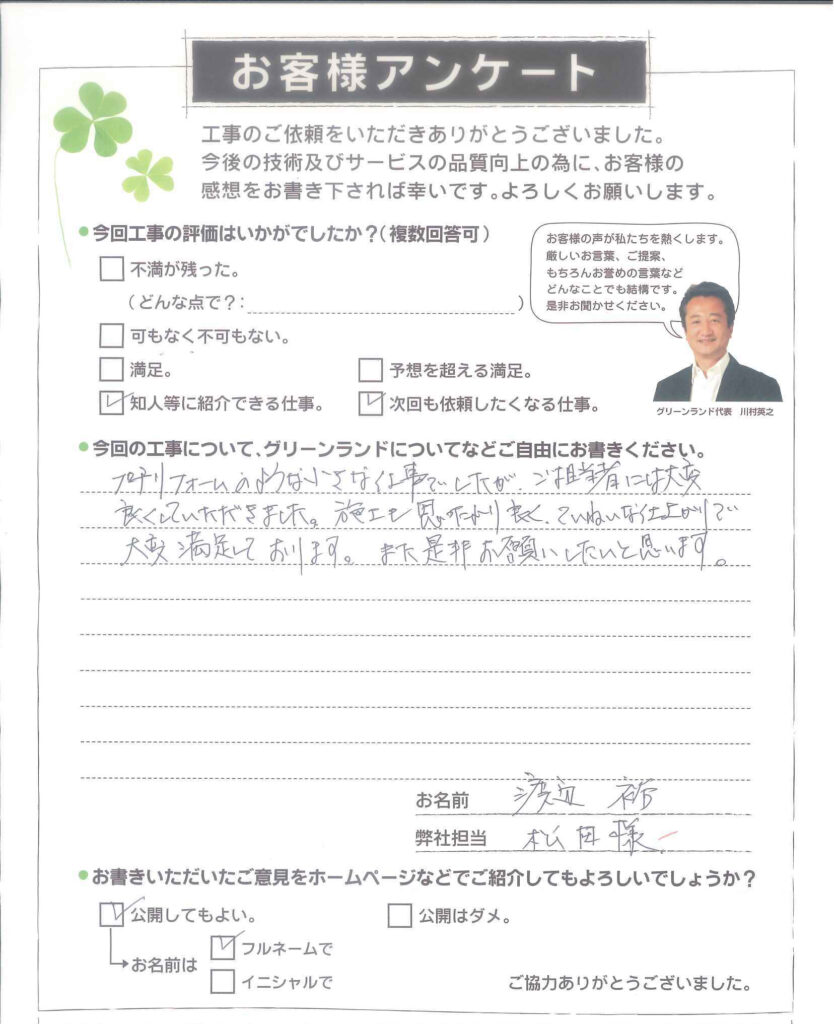 お客様アンケート
工事のご依頼をいただきありがとうございました。
今後の技術及びサービスの品質向上の為に、お客様の
感想をお書き下されば幸いです。よろしくお願いします。
今回工事の評価はいかがでしたか？（複数回答可）
不満が残った。
（どんな点で？：）
可もなく不可もない。
満足。
予想を超える満足。
知人等に紹介できる仕事。
次回も依頼したくなる仕事。
お客様の声が私たちを熱くします。
厳しいお言葉、ご提案、
もちろんお誉めの言葉など
どんなことでも結構です。
是非お聞かせください。
グリーンランド代表　川村英之
今回の工事について、グリーンランドについてなどご自由にお書きください。
プチリフォームのような小さな仕事でしたが、ご担当者には大変
良くしていただきました。施工も 良く、ていねいな仕上がりで
大変満足しております。また是非お願いしたいと思います。
お名前　渡辺　裕
弊社担当　松田様
お書きいただいたご意見をホームページなどでご紹介してもよろしいでしょうか？
公開してもよい。
公開はダメ。
お名前は
フルネームで
イニシャルで
ご協力ありがとうございました。